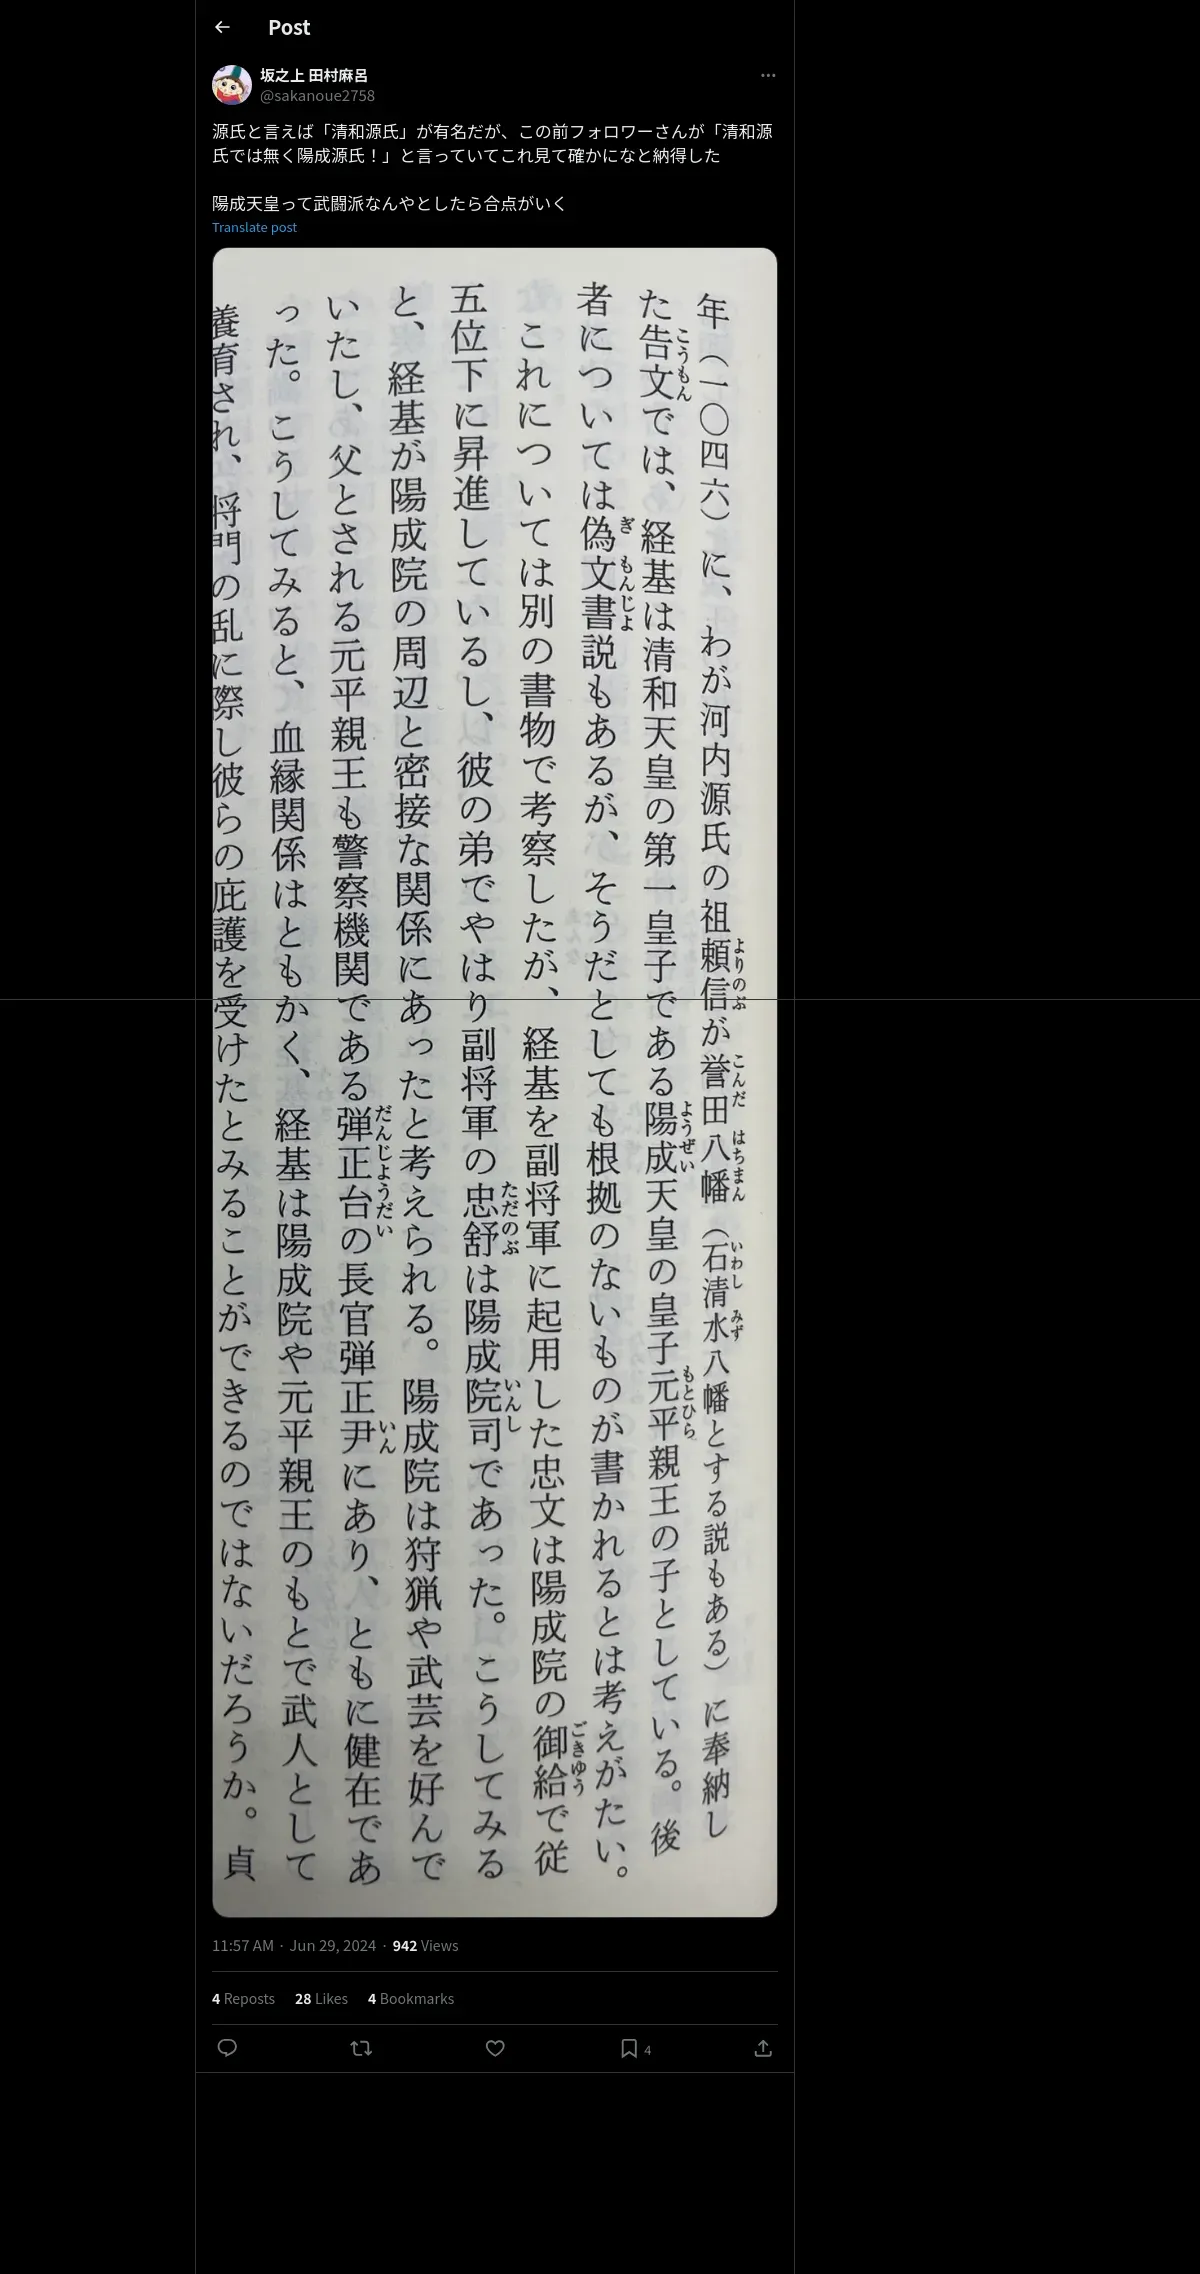 Post
坂之上 田村麻呂
@sakanoue2758
源氏と言えば「清和源氏」が有名だが、この前フォロワーさんが「清和源
氏では無く陽成源氏！」と言っていてこれ見て確かになと納得した
陽成天皇って武闘派なんやとしたら合点がいく
Translate post
年（一〇四六）に、わが河内源氏の祖頼信が誉田八幡（石清水八幡とする説もある）に奉納し
よりのぶ
こんだ
はちまん
いわし
みず
た告文では、経基は清和天皇の第一皇子である陽成天皇の皇子元平親王の子としている。後
こうもん
ようぜい
もとひら
者については偽文書説もあるが、そうだとしても根拠のないものが書かれるとは考えがたい。
ぎ
もんじよ
これについては別の書物で考察したが、経基を副将軍に起用した忠文は陽成院の御給で従
ごきゆう
五位下に昇進しているし、彼の弟でやはり副将軍の忠舒は陽成院司であった。こうしてみる
ただのぶ
いんし
と、経基が陽成院の周辺と密接な関係にあったと考えられる。陽成院は狩猟や武芸を好んで
いたし、父とされる元平親王も警察機関である弾正台の長官弾正尹にあり、ともに健在であ
だんじようだい
いん
った。こうしてみると、血縁関係はともかく、経基は陽成院や元平親王のもとで武人として
養育され、将門の乱に際し彼らの庇護を受けたとみることができるのではないだろうか。貞
11:57 AM · Jun 29, 2024 · 942 Views
4 Reposts 28 Likes 4 Bookmarks
4